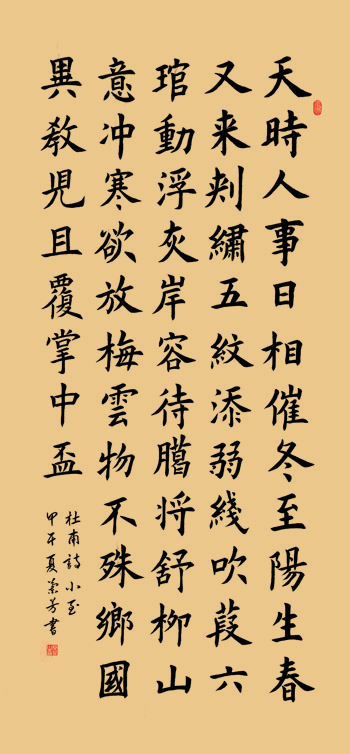 天時人事日相催冬至陽生春
又来刾繡五紋添弱綫吹葭六
琯動浮灰岸容待臘将舒柳山
意冲寒欲放梅雲物不殊鄉國
異教児且覆掌中盃
杜甫詩小至
甲午夏芳書